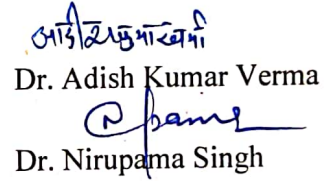 आदीश कुमार वर्मा
Dr. Adish Kumar Verma
Dr. Nirupama Singh